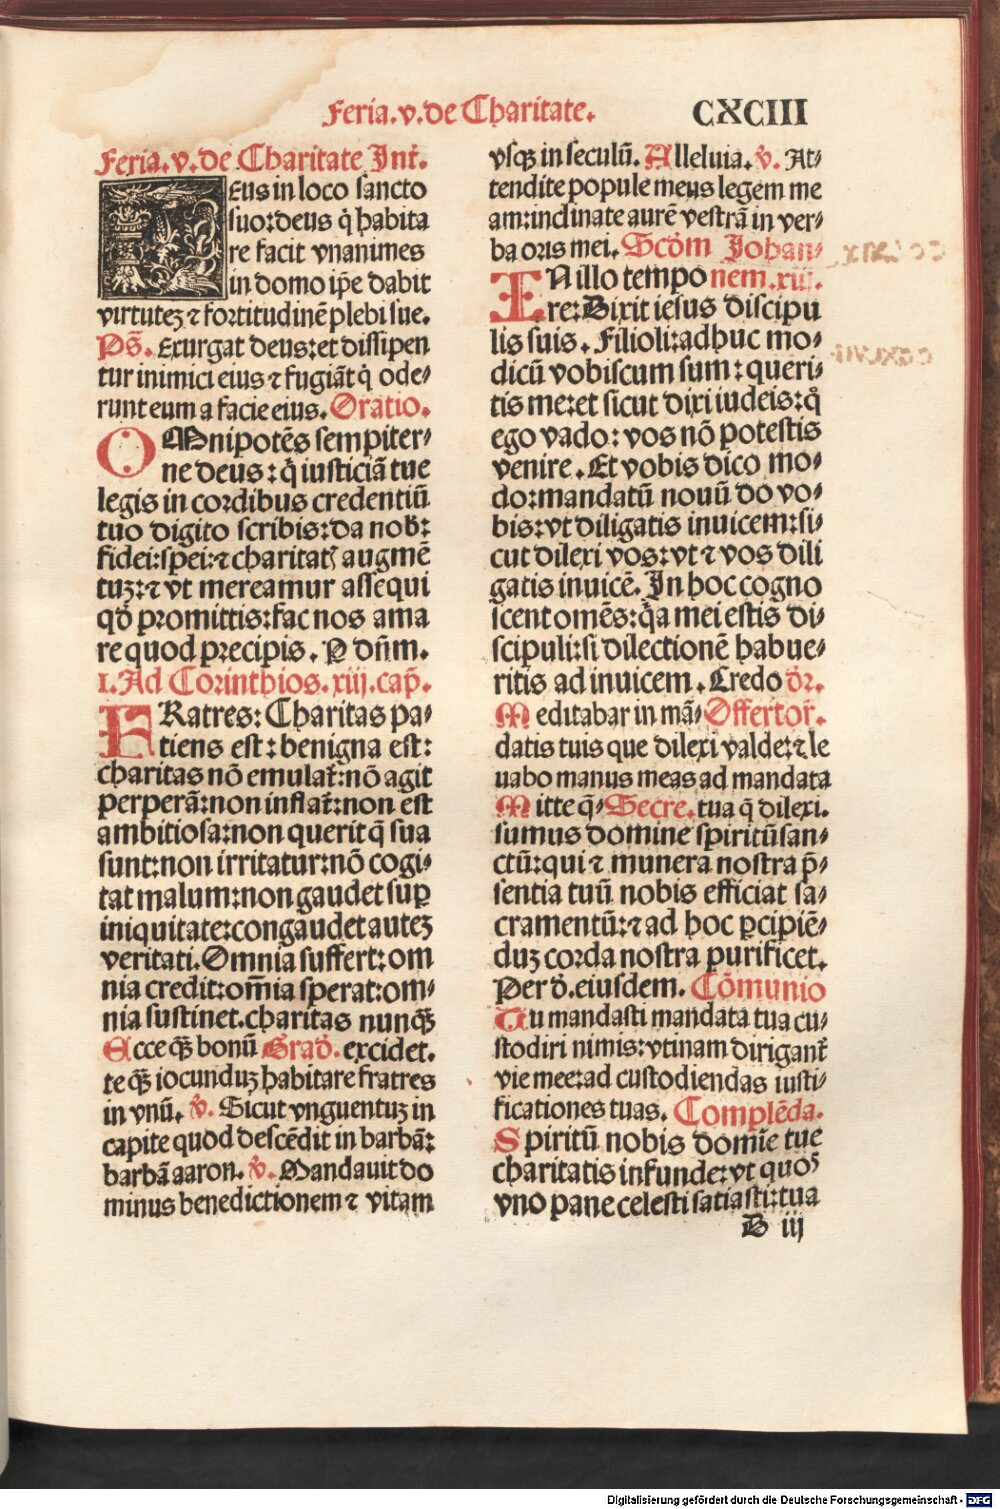 Feria.v.de Charitate.
CXCIII
Feria.v.de Charitate Int̄.
DEus in loco sancto
suo:deus q̇ habita
re facit vnanimes
in domo ip̄e dabit
virtuteꝫ ⁊ fortitudinē plebi sue.
Ps̄. Exurgat deus:et dissipen
tur inimici eius ⁊ fugiāt q̇ ode⸗
runt eum a facie eius. Oratio.
OMnipotēs sempiter⸗
ne deus:q̇ iusticiā tue
legis in cordibus credentiū
tuo digito scribis:da nob̄:
fidei:spei:⁊ charitatꝭ augmē
tuꝫ:⁊ vt mereamur assequi
qd̄ promittis:fac nos ama
re quod precipis. P dn̄m.
I. Ad Corinthios. xiij.cap̄.
FRatres: Charitas pa⸗
tiens est: benigna est:
charitas nō emulat̄:nō agit
perperā:non inflat̄:non est
ambitiosa:non querit q̄ sua
sunt:non irritatur:nō cogi⸗
tat malum:non gaudet suꝑ
iniquitate:congaudet auteꝫ
veritati.Omnia suffert:om
nia credit:om̄ia sperat:om⸗
nia sustinet.charitas nunqꝫ̄
Ecce qꝫ̄ bonū Grad̄. excidet.
te qꝫ̄ iocunduꝫ habitare fratres
in vnū. ℣. Sicut vnguentuꝫ in
capite quod descēdit in barbā:
barbā aaron. ℣. Mandauit do
minus benedictionem ⁊ vitam
vsqꝫ in seculū. Alleluia. ℣. At⸗
tendite popule meus legem me
am:inclinate aurē vestrā in ver⸗
ba oris mei. Scd̄m Johan⸗
IN illo tempo nem.xiii.
re:Dixit iesus discipu
lis suis. Filioli:adhuc mo⸗
dicū vobiscum sum: queri⸗
tis me:et sicut dixi iudeis:q̊
ego vado: vos nō potestis
venire. Et vobis dico mo⸗
do:mandatū nouū do vo⸗
bis:vt diligatis inuicem:si⸗
cut dilexi vos:vt ⁊ vos dili
gatis inuicē. In hoc cogno
scent omēs:q̇a mei estis di⸗
scipuli:si dilectionē habue⸗
ritis ad inuicem. Credo dr̄.
Meditabar in mā⸗ Offertor̄.
datis tuis que dilexi valde:⁊ le
uabo manus meas ad mandata
Mitte q̄⸗ Secre. tua q̄ dilexi.
sumus domine spiritū san⸗
ctū:qui ⁊ munera nostra p̄⸗
sentia tuū nobis efficiat sa⸗
cramentū:⁊ ad hoc ꝑcipiē⸗
duꝫ corda nostra purificet.
Per d̄.eiusdem. Cōmunio
Tu mandasti mandata tua cu⸗
stodiri nimis:vtinam dirigant̄
vie mee:ad custodiendas iusti⸗
ficationes tuas. Complēda.
Spiritū nobis domīe tue
charitatis infunde:vt quoꝰ
vno pane celesti satiasti:tua
B iij
Digitalisierung gefördert durch die Deutsche Forschungsgemeinschaft - DFG